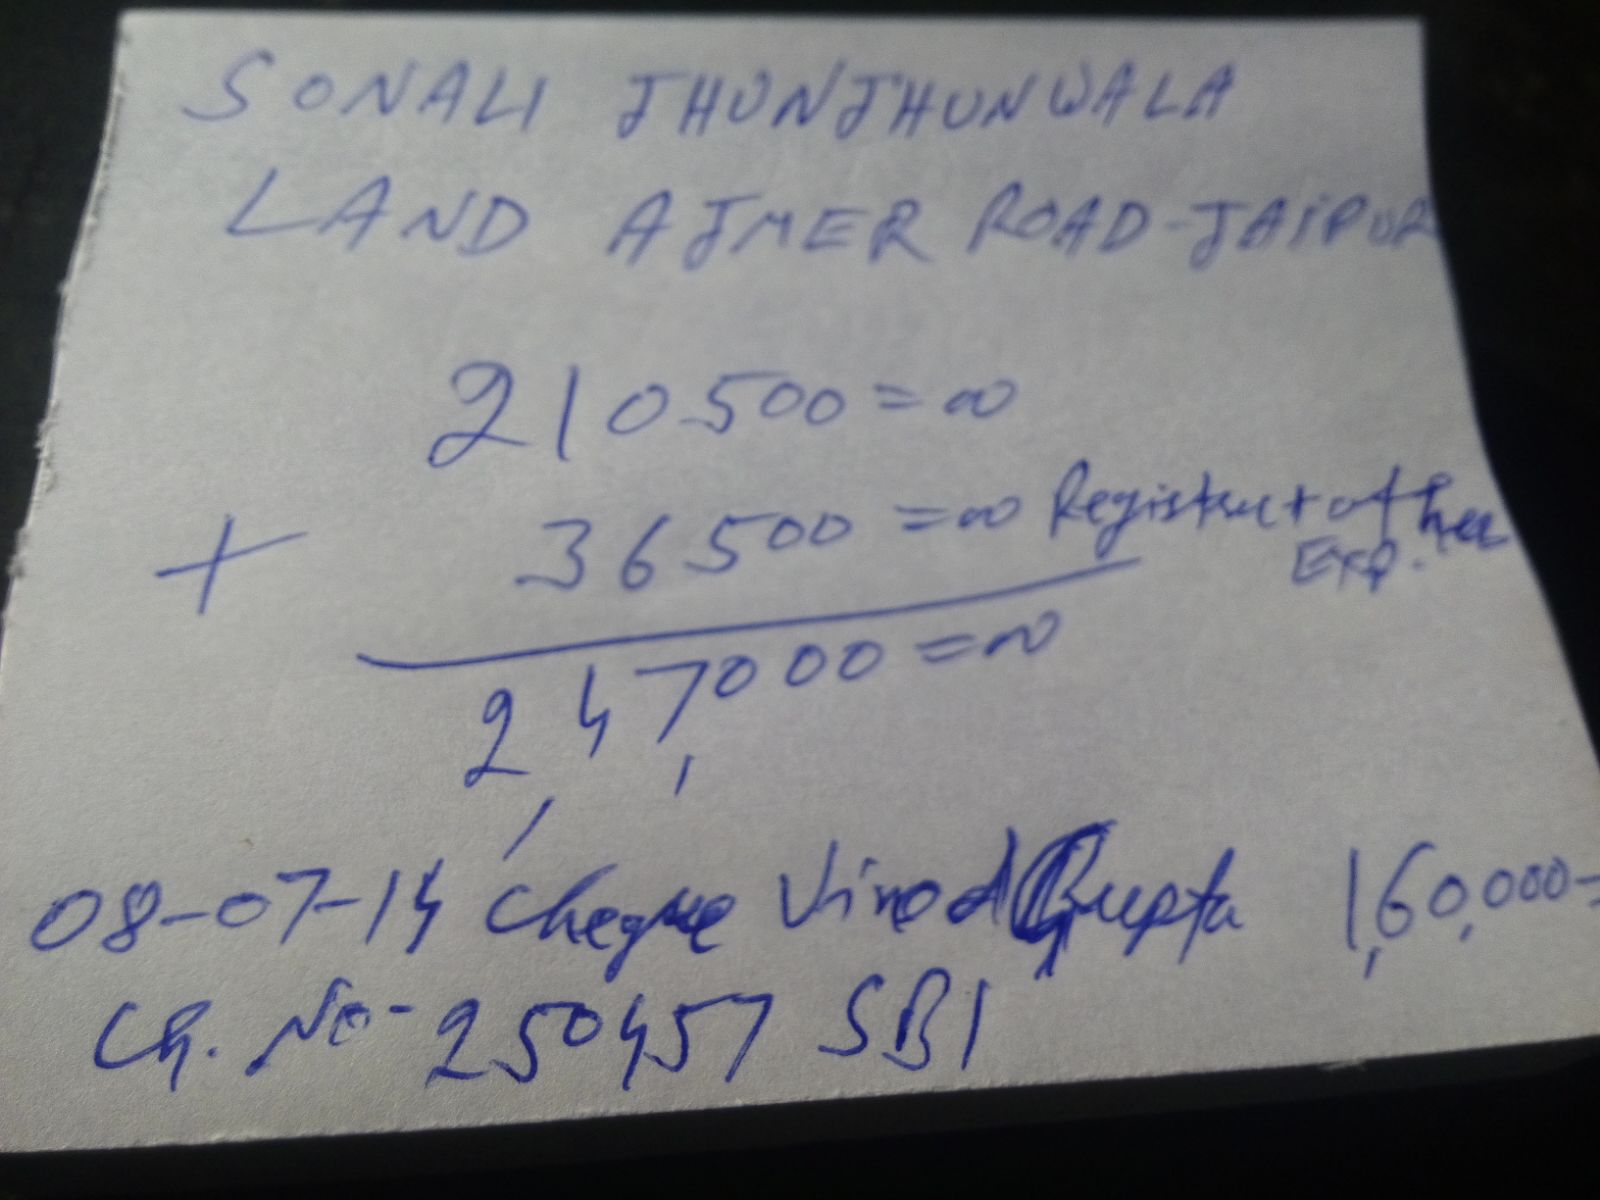 SONALI JHUNJHUNWALA
LAND AJMER ROAD-JAIPUR
210500=00
+ 36500=00 Registree + other Exp.
247,000=00
08-07-14 Cheque Vinod Gupta 1,60,000=
Ch. No- 250457 SBI